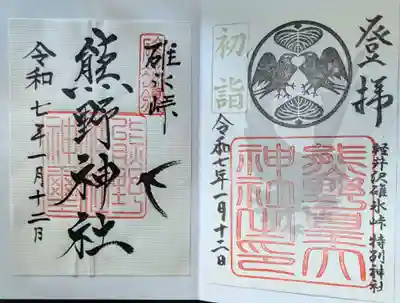 登拝
軽井沢碓氷峠 特別神社
初詣
令和七年一月十二日
熊野皇大
神社之印
碓氷峠
熊野神社
令和七年一月十二日